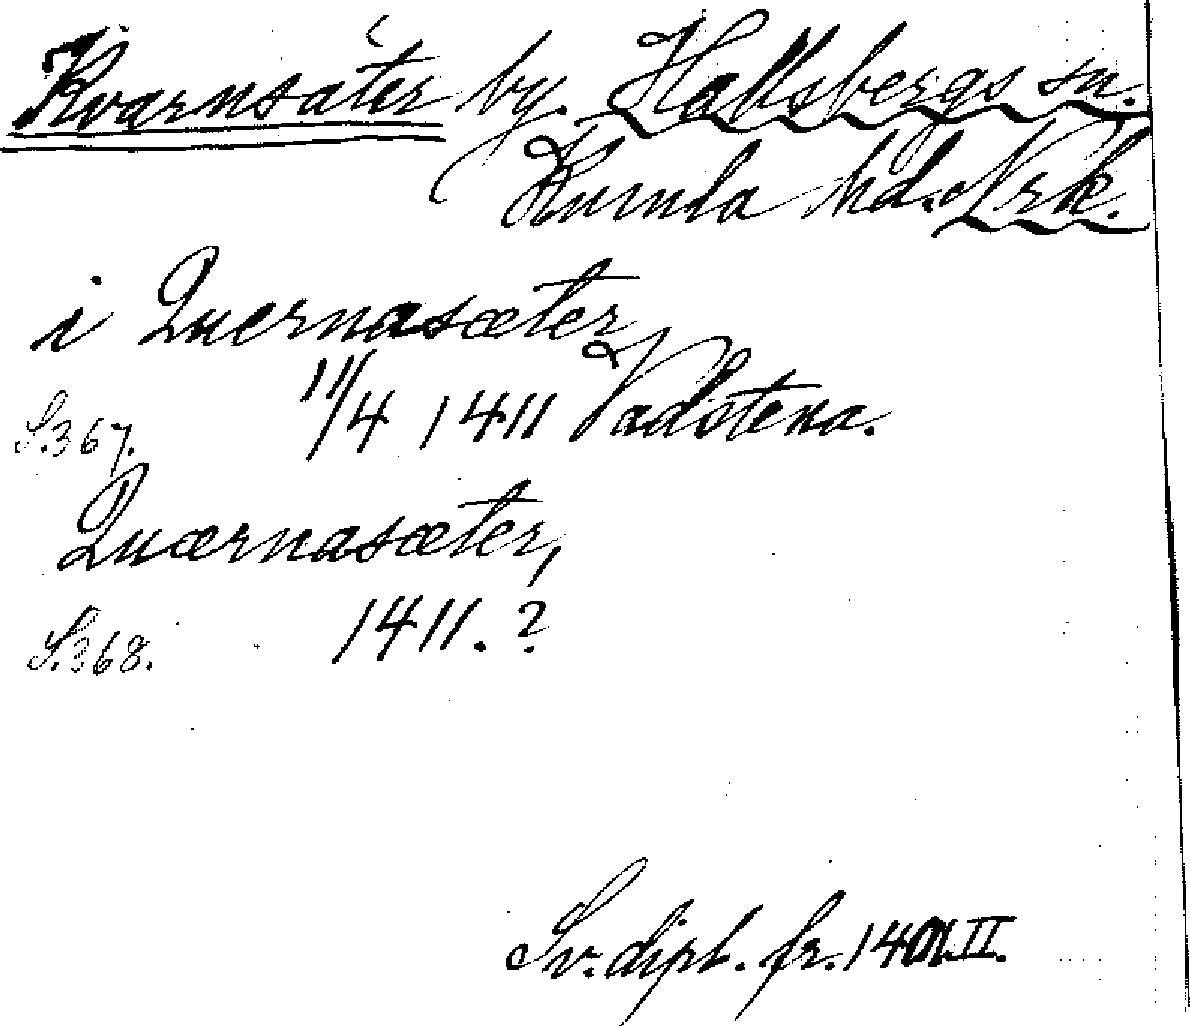 Kvarnsäter by. Hallsbergs sn.
Kumla hd. Nrk.
i Quernasæter
11/4 1411 Vadstena.
S. 367.
Quærnasæter,
1411. ?
S. 368.
Sv. dipl. fr. 1401. II.